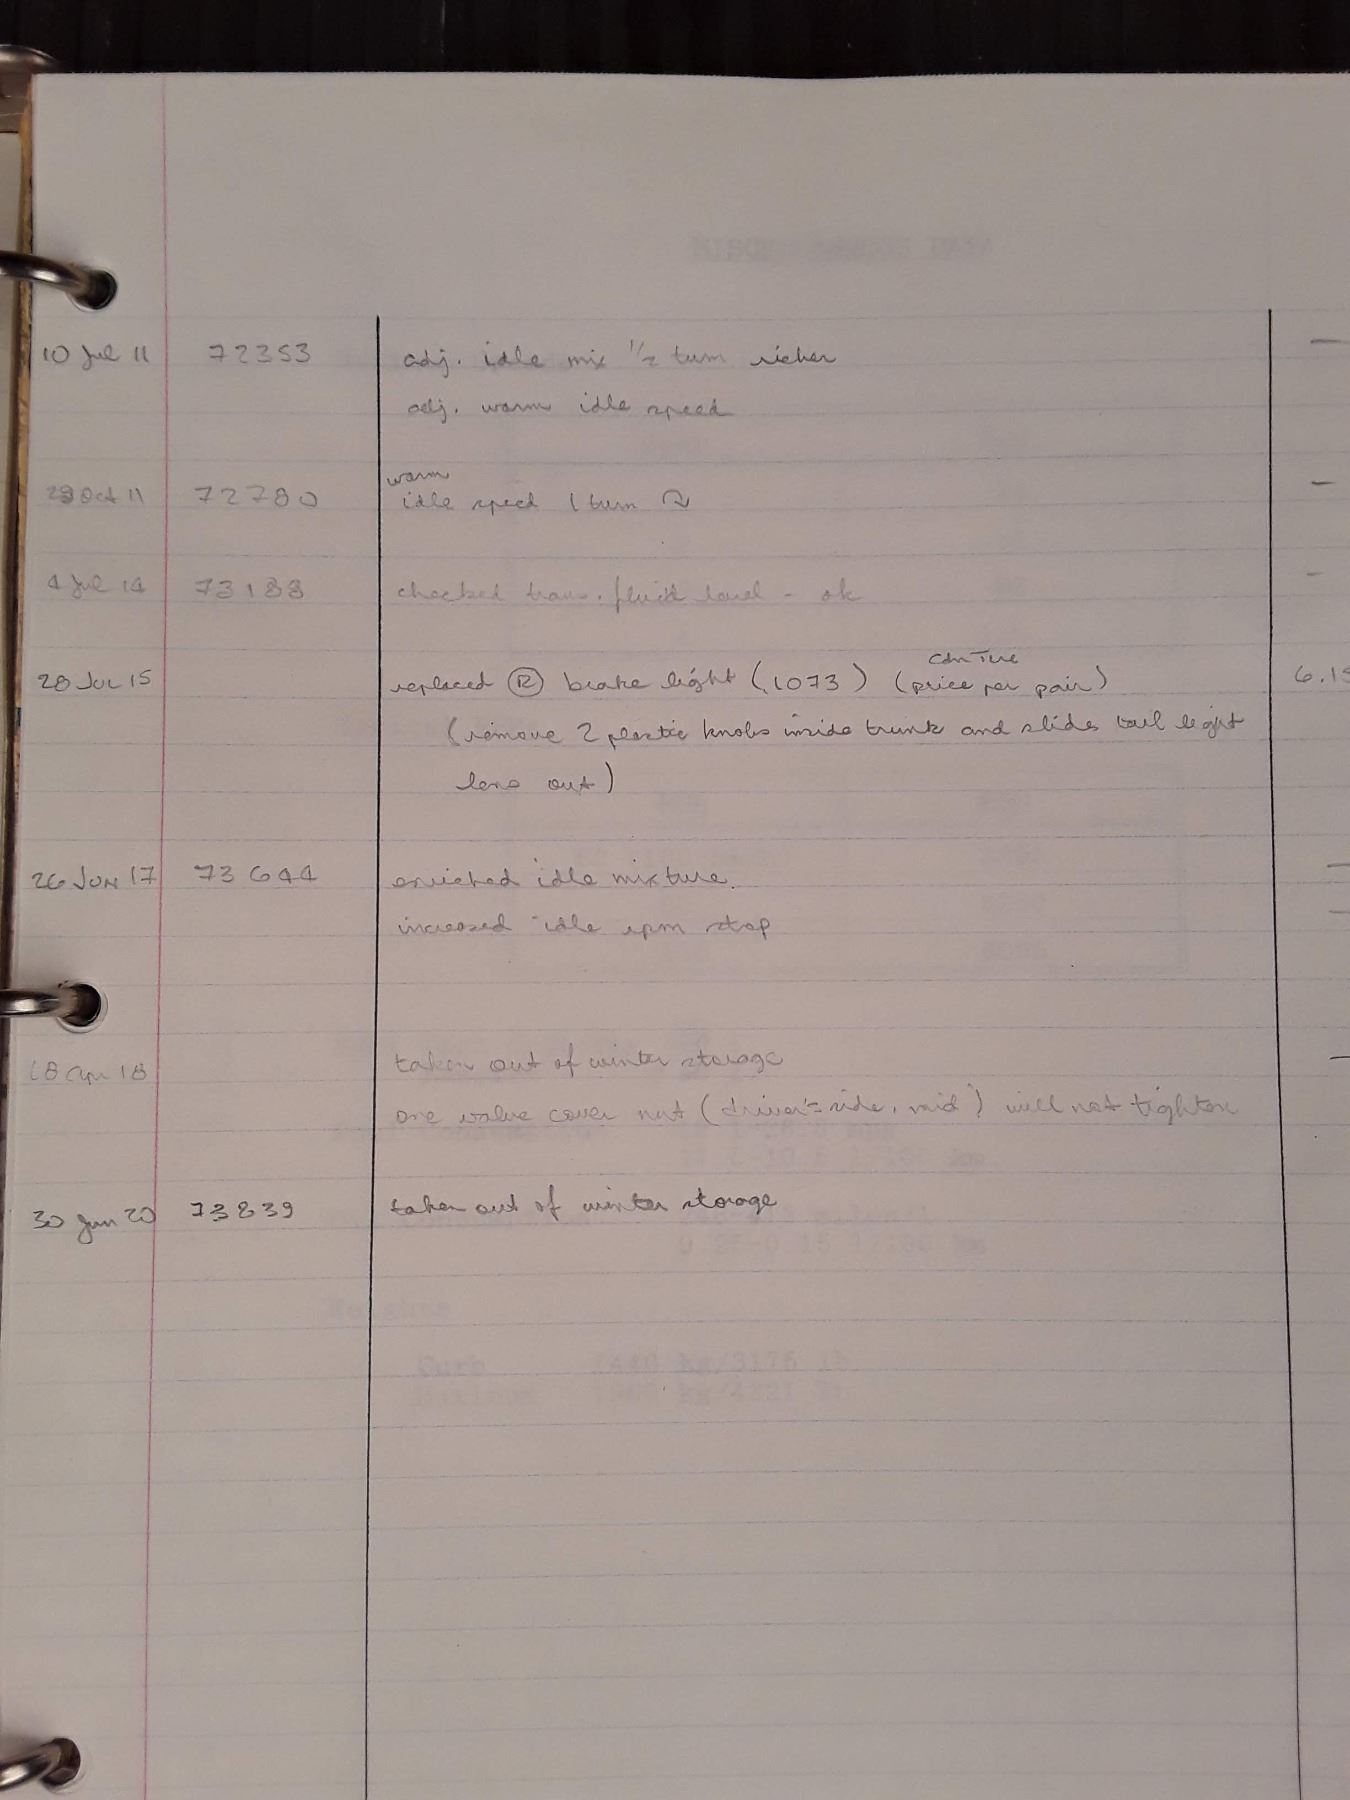 10 Jul 11 72353 adj. idle mix 1/2 turn richer —
adj. warm idle speed
warm
Oct 11 72780 idle speed 1 turn –
4 Jul 14 73188 checked trans. fluid level - ok –
Cdn Tire
28 JUL 15 replaced Ⓡ brake light (1073) (price per pair) 6.15
(remove 2 plastic knobs inside trunk and slide tail light
lens out)
26 JUN 17 73644 enriched idle mixture. —
increased idle rpm stop —
18 Apr 18 taken out of winter storage —
one valve cover nut (driver's side, mid) will not tighten
30 Jun 20 73839 taken out of winter storage
Curb kg/3176 lb
Maximum